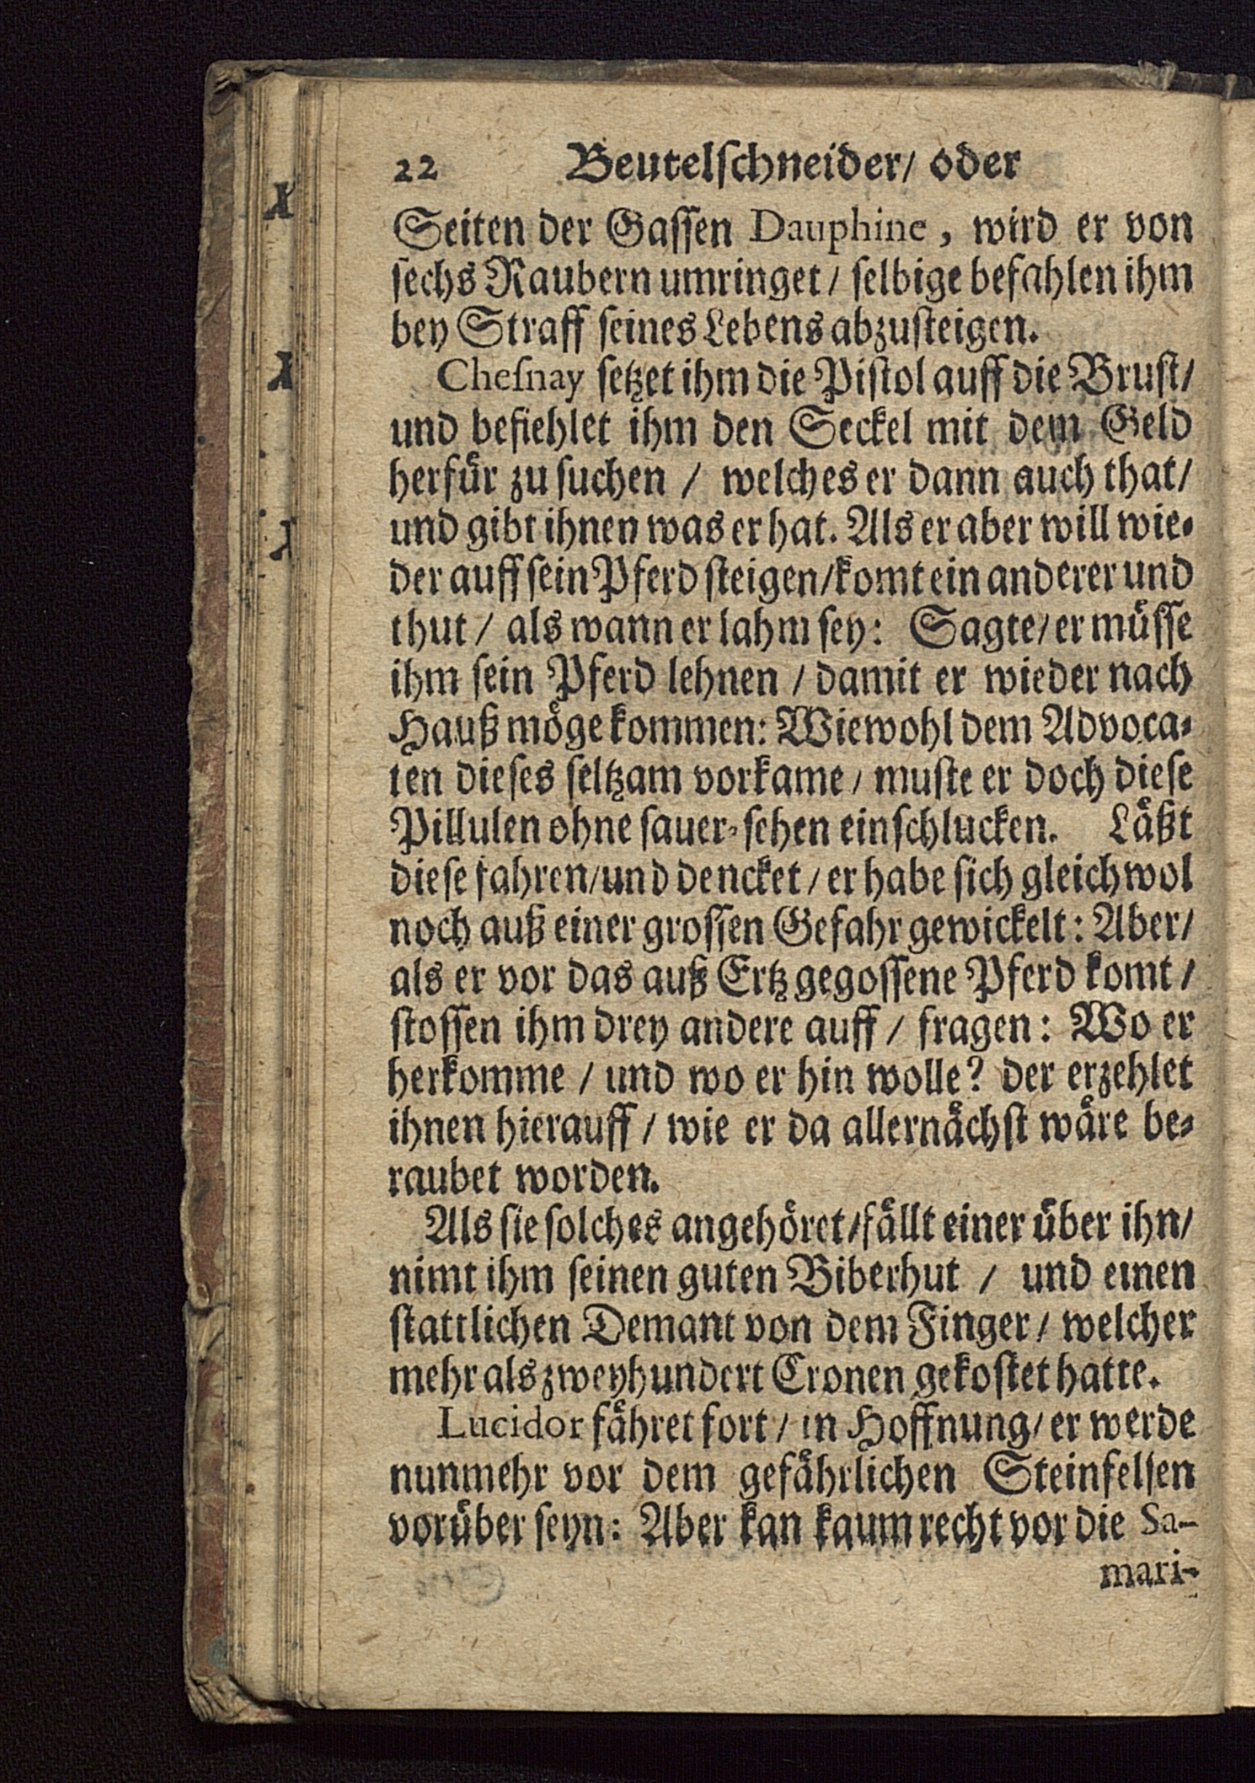 22 Beutelschneider/ oder
Seiten der Gassen Dauphine, wird er von
sechs Raubern umringet / selbige befahlen ihm
bey Straff seines Lebens abzusteigen.
Chesnay setzet ihm die Pistol auff die Brust/
und befiehlet ihm den Seckel mit dem Geld
herfür zu suchen / welches er dann auch that/
und gibt ihnen was er hat. Als er aber will wie-
der auff sein Pferd steigen/komt ein anderer und
thut / als wann er lahm sey: Sagte/er müsse
ihm sein Pferd lehnen / damit er wieder nach
Hauß möge kommen: Wiewohl dem Advoca-
ten dieses seltzam vorkame / muste er doch diese
Pillulen ohne sauer-sehen einschlucken. Läßt
diese fahren/und dencket / er habe sich gleichwol
noch auß einer grossen Gefahr gewickelt: Aber/
als er vor das auß Ertz gegossene Pferd komt /
stossen ihm drey andere auff / fragen: Wo er
herkomme / und wo er hin wolle? der erzehlet
ihnen hierauff / wie er da allernächst wäre be-
raubet worden.
Als sie solches angehöret/fällt einer über ihn/
nimt ihm seinen guten Biberhut / und einen
stattlichen Demant von dem Finger / welcher
mehr als zweyhundert Cronen gekostet hatte.
Lucidor fähret fort / in Hoffnung/ er werde
nunmehr vor dem gefährlichen Steinfelsen
vorüber seyn: Aber kan kaum recht vor die Sa-
mari-